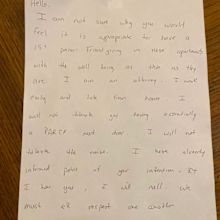 Hello,
I am not sure why you would
feel it is appropriate to have a
15+ person Friendsgiving in these apartments
with the walls being as thin as they
are. I am an attorney. I work
early and late from home. I
will not tolerate you having essentially
a PARTY next door. I will not
tolerate the noise. I have already
informed of your intention. If
I hear you, I will call. We
must all respect one another